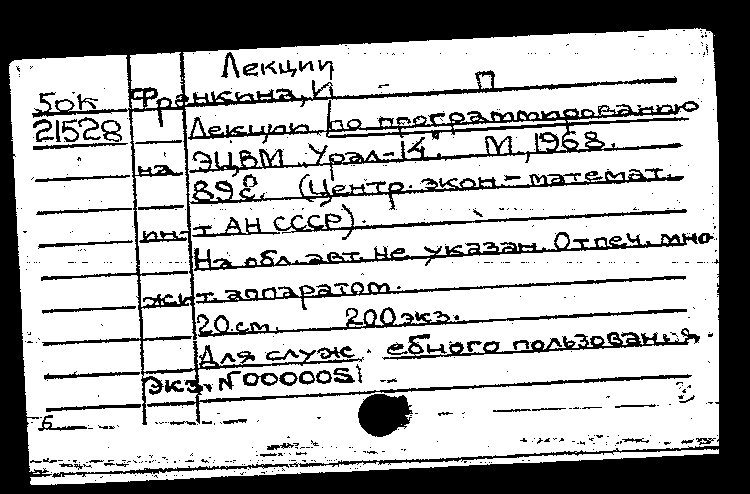 Лекции
5ок Франкина, И - П
21528 Лекции по программированию
на ЭЦВМ „Урал-14“. М., 1968.
89с. (Центр. экон.- математ.
ин-т АН СССР).
На обл. авт. не указан. Отпеч. мно-
жит. аппаратом.
20 см. 200 экз.
Для служебного пользования.
Экз. №000005
Б